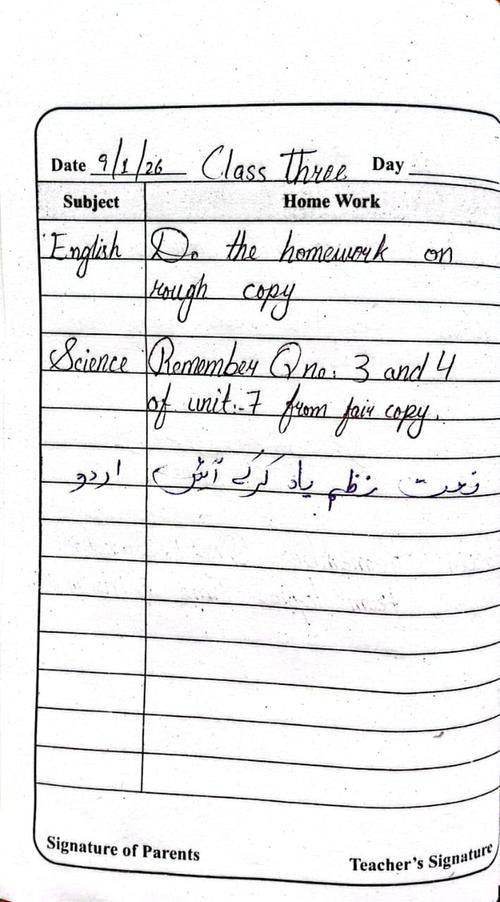 Date 9/1/26 Class Three Day
Subject Home Work
English Do the homework on
rough copy
Science Remember Q no: 3 and 4
of unit:-7 from fair copy.
اردو نعت نظم یاد کرکے آئیں
Signature of Parents Teacher's Signature